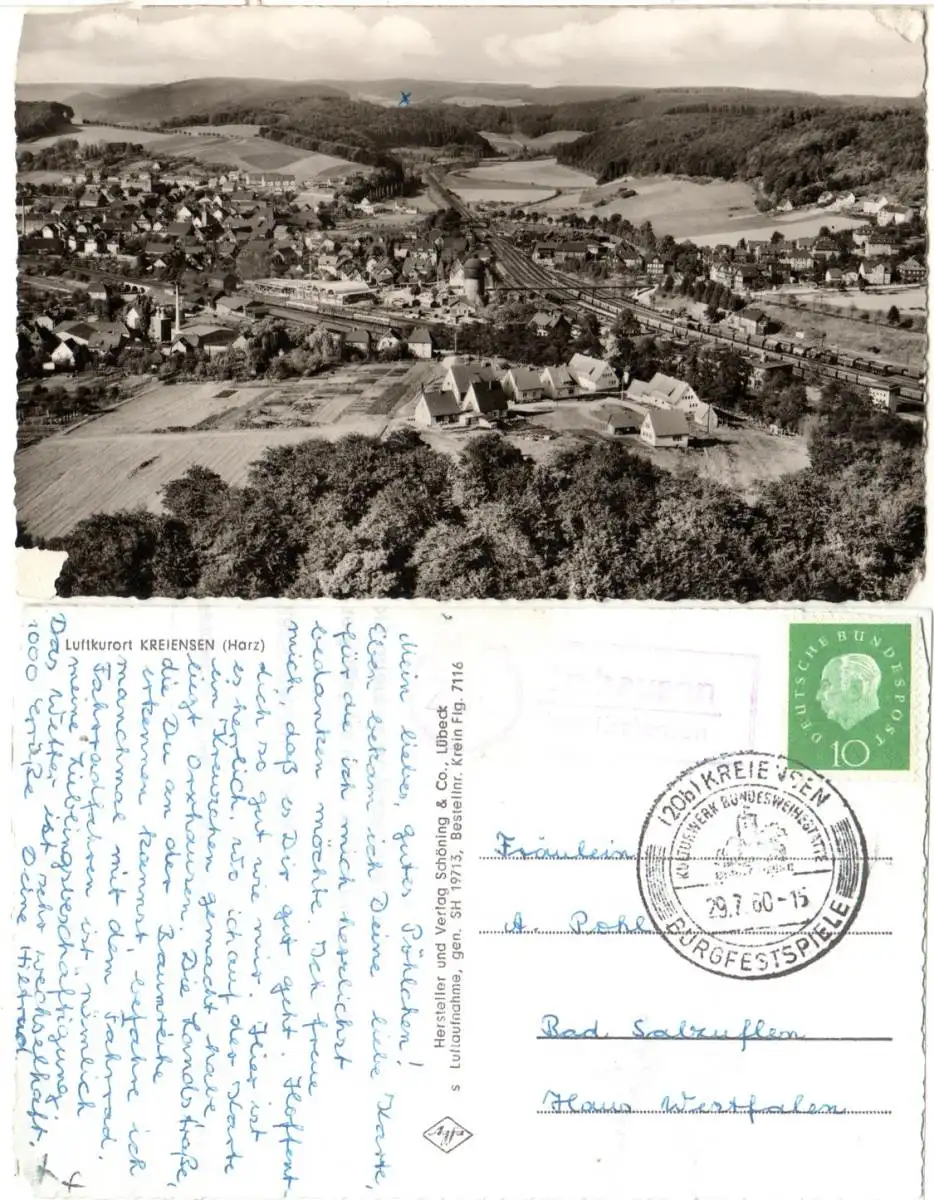 Luftkurort KREIENSEN (Harz)
Mein liebes, gutes Pöhlchen!
Eben bekam ich Deine liebe Karte,
für die ich mich herzlichst
bedanken möchte. Ich freue
mich, daß es Dir gut geht. Hoffent-
lich so gut wie mir. Hier ist
es herrlich. Wo ich auf der Karte
ein Kreuzchen gemacht habe
liegt Orxhausen. Die Landstraße,
die Du an der Baumreihe
erkennen kannst, befahre ich
manchmal mit dem Fahrrad.
Fahrradfahren ist nämlich
meine Lieblingsbeschäftigung.
Das Wetter ist sehr wechselhaft.
1000 Grüße Deine Hiltrud
Hersteller und Verlag Schöning & Co., Lübeck
s Luftaufnahme, gen. SH 19713, Bestellnr. Krein Flg. 7116
DEUTSCHE BUNDESPOST
10
(20b) KREIENSEN
KULTURWERK BUNDESWEIHESTÄTTE
29.7.60-15
BURGFESTSPIELE
Fräulein
A. Pohl
Bad Salzuflen
Haus Westfalen